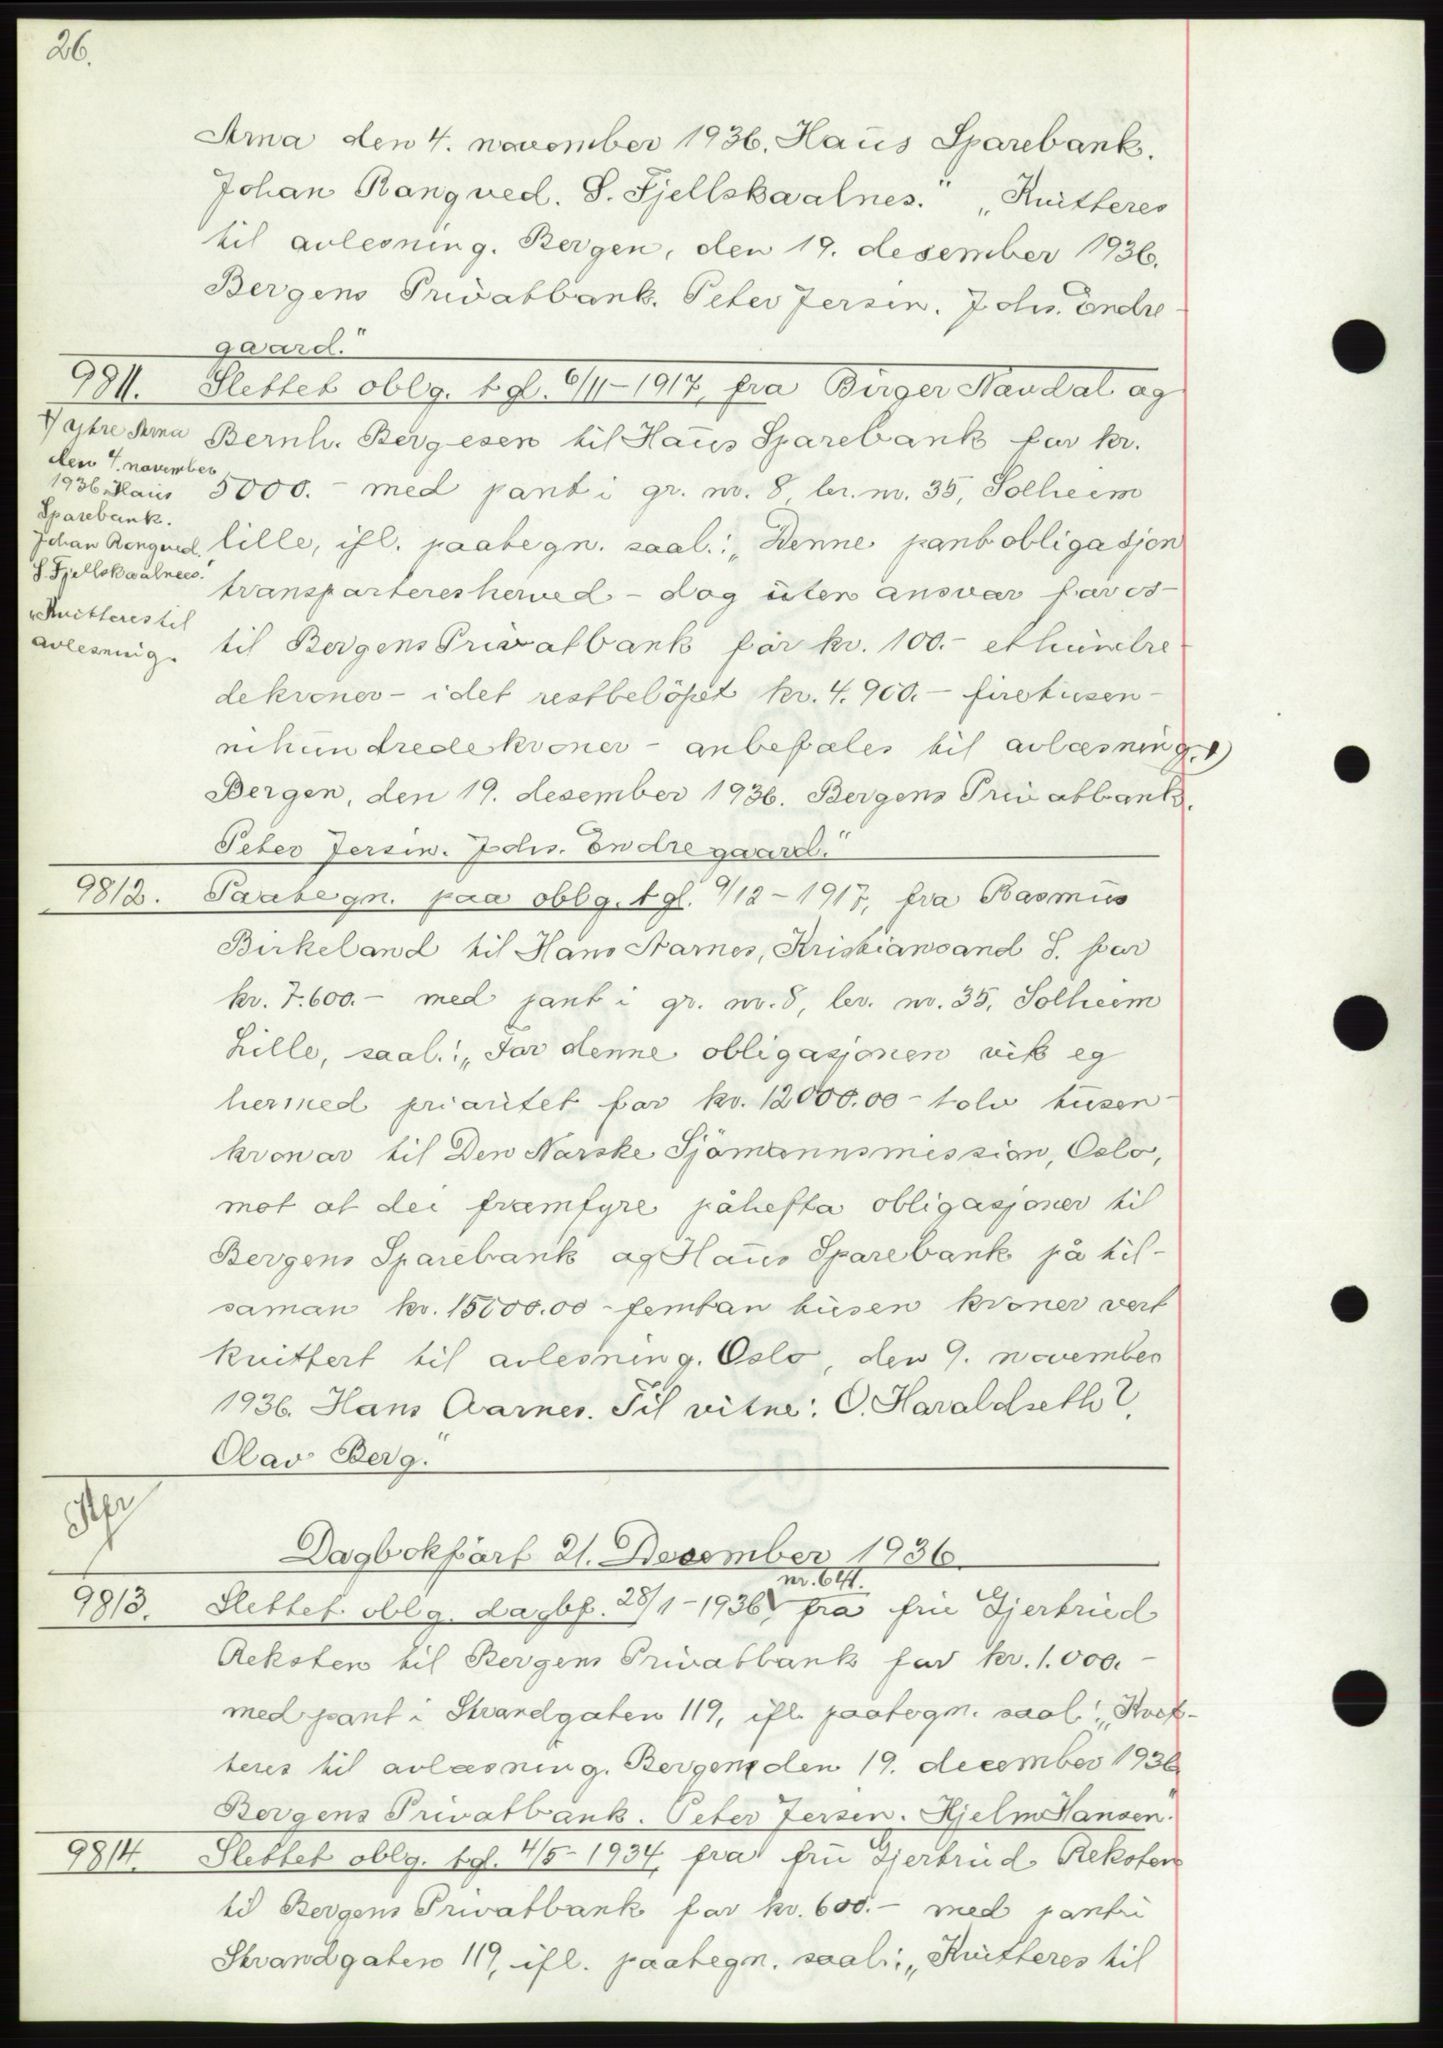 26.
Arna den 4. november 1936. Haus Sparebank.
Johan Rongved. S. Fjellskaalnes." „Kvitteres
til avlesning. Bergen, den 19. desember 1936.
Bergens Privatbank. Peter Jersin. Johs. Endre-
gaard."
9811. Slettet oblg. tgl. 6/11-1917, fra Birger Navdal og
Bernh. Bergesen til Haus Sparebank for kr.
5000.- med pant i gr. nr. 8, br. nr. 35, Solheim
lille, ifl. paategn. saal.: „Denne pantobligasjon
transporteres herved - dog uten ansvar for os -
til Bergens Privatbank for kr. 100.- ethundre-
dekroner - idet restbeløpet kr. 4.900.- firetusen-
nihundredekroner - anbefales til avlæsning. 1)
Bergen, den 19. desember 1936. Bergens Privatbank.
Peter Jersin. Johs. Endregaard."
1) Ytre Arna
den 4. november
1936. Haus
Sparebank.
Johan Rongved.
S. Fjellskaalnes."
„Kvitteres til
avlesning.
9812. Paategn. paa oblg. tgl. 9/12-1917, fra Rasmus
Birkeland til Hans Aarnes, Kristiansand S. for
kr. 7.600.- med pant i gr. nr. 8, br. nr. 35, Solheim
Lille, saal.: „For denne obligasjonen vik eg
hermed prioritet for kr. 12000.00 - tolv tusen -
kronar til Den Norske Sjömannsmission, Oslo,
mot at dei framfyre påhefta obligasjoner til
Bergens Sparebank og Haus Sparebank på til-
saman kr. 15000.00 - femtan tusen kroner vert
kvittert til avlesning. Oslo, den 9. november
1936. Hans Aarnes. Til vitne: O. Haraldseth?
Olav Berg."
Dagbokført 21. Desember 1936.
9813. Slettet oblg. dagbf. 28/1-1936, nr. 641. fra frú Gjertrúd
Reksten til Bergens Privatbank for kr. 1.000.-
med pant i Strandgaten 119, ifl. paategn. saal.: „Kvit-
teres til avlæsning. Bergen, den 19. december 1936
Bergens Privatbank. Peter Jersin. Hjelm Hansen."
9814. Slettet oblg. tgl. 4/5-1934, fra frú Gjertrud Reksten
til Bergens Privatbank for kr. 600.- med pant i
Strandgaten 119, ifl. paategn. saal.: „Kvitteres til